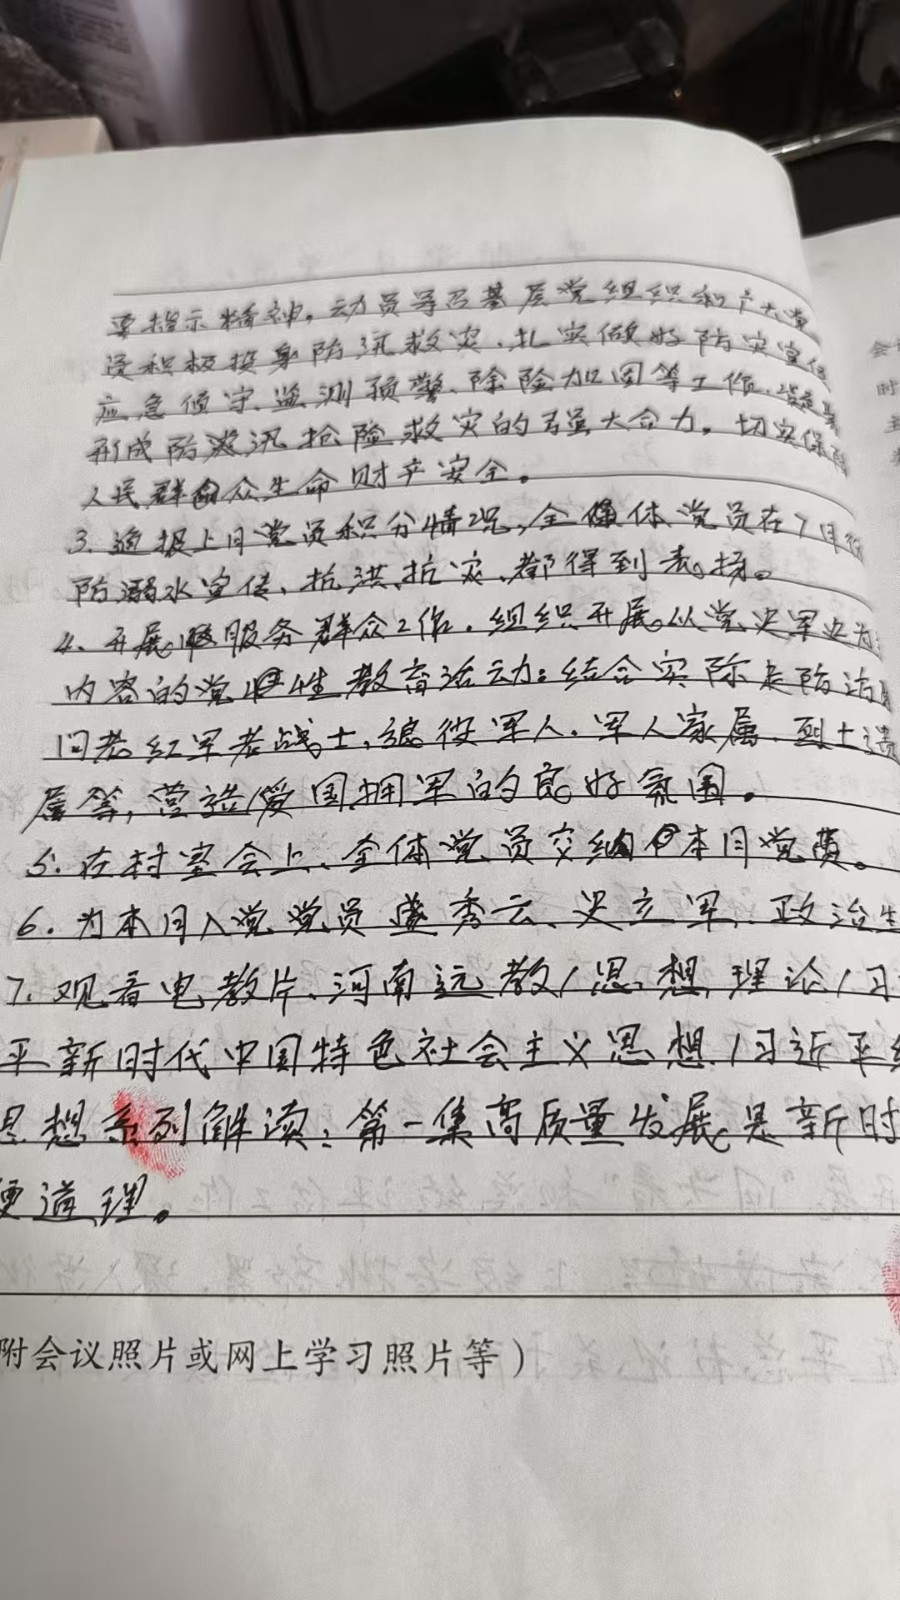 要指示精神，动员号召基层党组织和广大党
员积极投身防汛救灾、扎实做好防灾宣传
应急值守、监测预警、除险加固等工作，
形成防汛抢险救灾的强大合力。切实保障
人民群众生命财产安全。
3、通报上月党员积分情况，全体党员在7月份
防溺水宣传、抗洪、抗灾、都得到表扬。
4、开展服务群众工作。组织开展以党史军史为
内容的党性教育活动。结合实际走访
问老红军老战士、退役军人、军人家属、烈士遗
属等，营造爱国拥军的良好氛围。
5、在村室会上、全体党员交纳本月党费。
6、为本月入党党员盛秀云、史立军、政治生
7、观看电教片、河南远教/思想理论/习
平新时代中国特色社会主义思想/习近平经
思想系列解读：第一集高质量发展是新时
硬道理。
附会议照片或网上学习照片等）
会议
时
主